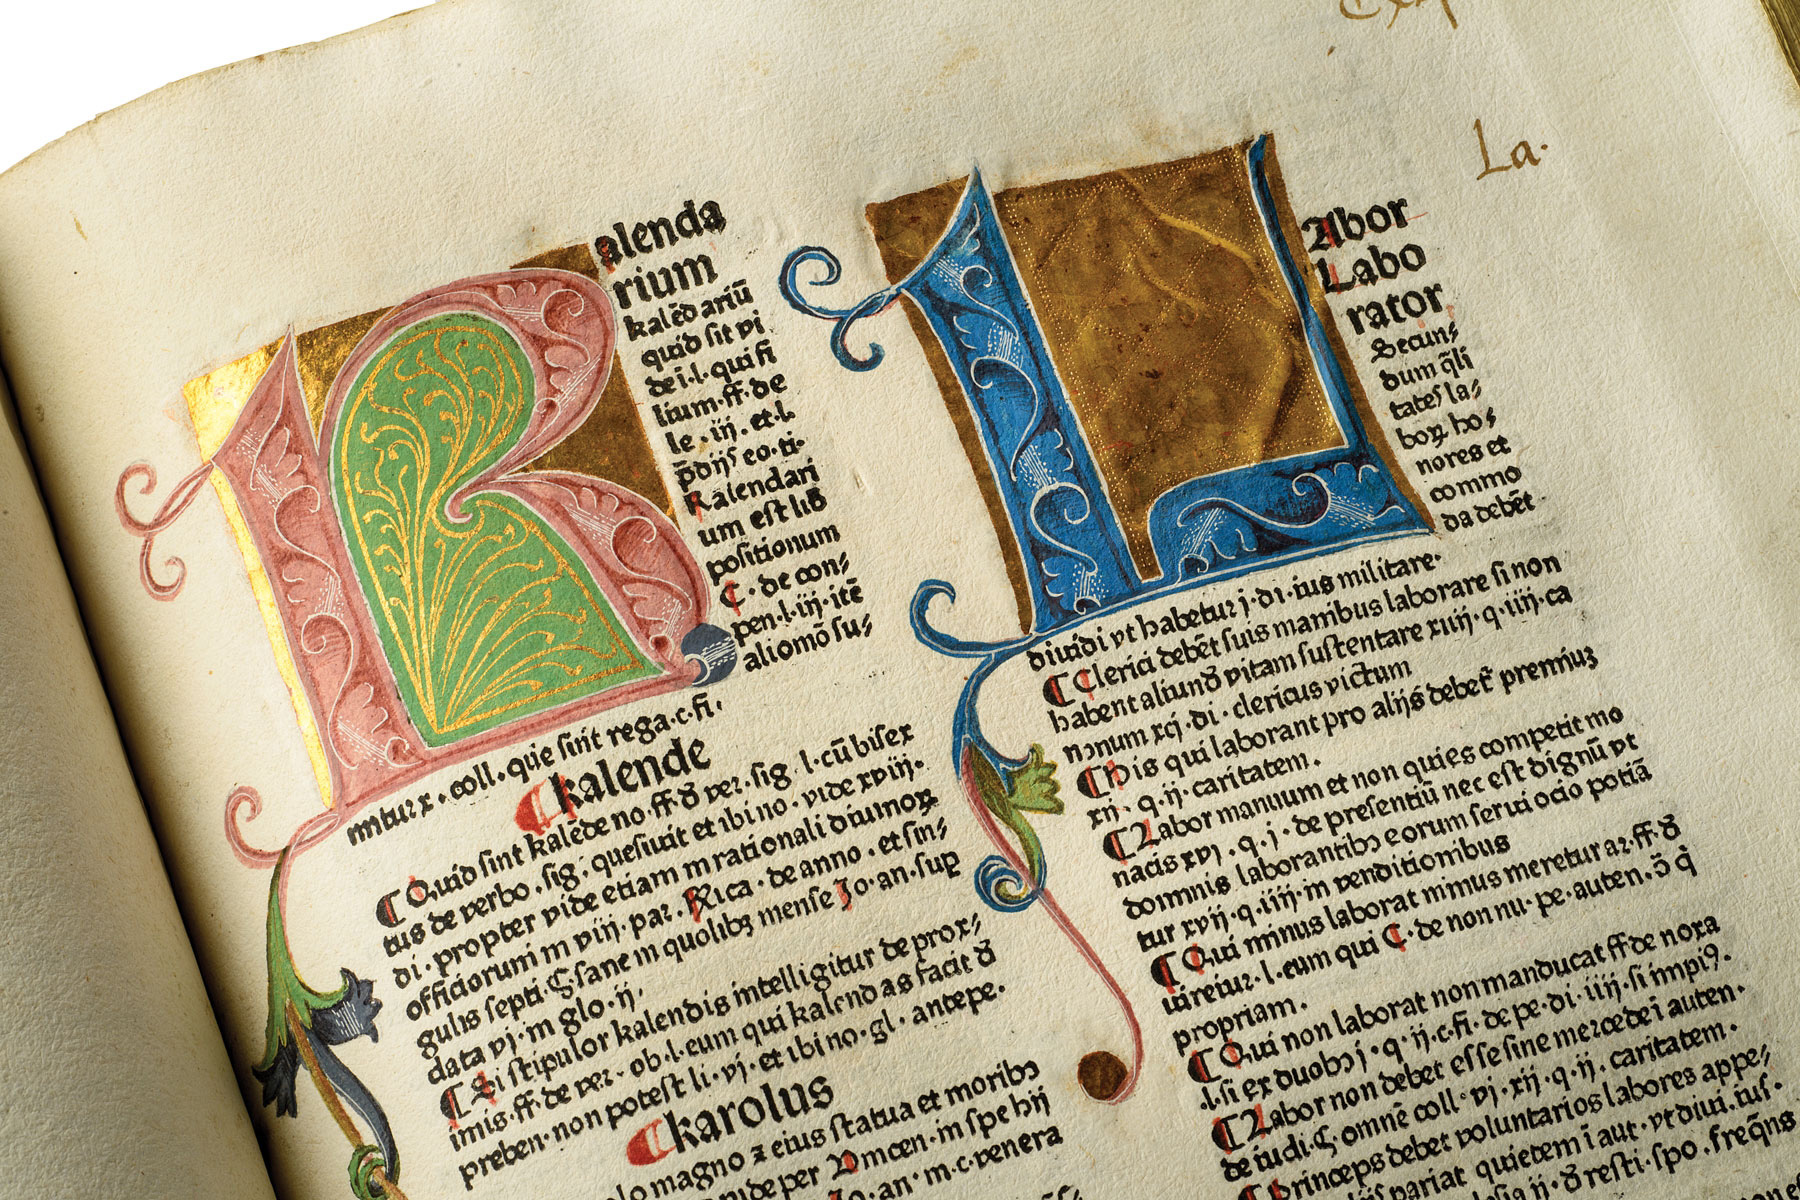 La.
K
alenda
rium
kalēd ariū
quid sit vi
de i. l. qui fi
lium. ff. de
le. iij. et. l.
p̄dijs eo. ti.
Kalendari
um est lib
positionum
C. de con⸗
pen. l. iij. itē
aliomō su⸗
mitur x. coll. que sint rega. c. fi.
¶kalende
¶Quid sint kalēde no. ff. ꝺ ver. sig. l. cū bisex
tus de verbo. sig. quesiuit et ibi no. vide xviij.
di. propter vide etiam in rationali diuinoꝝ
officiorum in viij. par. Rica. de anno. et sin⸗
gulis septi. sane in quolibꝫ mense Jo. an. sup
data vj. in glo. ij.
¶Si stipulor kalendis intelligitur de prox⸗
imis. ff. de ver. ob. l. eum qui kalendas facit ꝺ
preben. non potest li. vj. et ibi no. gl. antepe.
¶karolus
magno ⁊ eius statua et moribꝫ
in spe hij
Jo. an. in. c. venera
L
Abor
Labo
rator
Secun⸗
dum q̄li
tates la⸗
boꝝ ho⸗
nores et
commo
da debēt
diuidi vt habetur j. di. ius militare.
¶Clerici debēt suis manibus laborare si non
habent aliunꝺ vitam sustentare xiij. q. iiij. ca
nonum xcj. di. clericus victum
¶His qui laborant pro alijs debet premiuꝫ
xij. q. ij. caritatem.
¶Labor manuum et non quies competit mo
nacis xvj. q. j. de presentiū nec est dignū vt
domnis laborantibꝫ eorum serui ocio potiā
tur xvij. q. iiij. in venditionibus
¶Qui minus laborat minus meretur ar. ff. ꝺ
uiretur. l. eum qui C. de non nu. pe. auten. ꝺ q̇
propriam.
¶Qui non laborat non manducat ff. de noxa
l. si ex duobꝫ j. q. ij. c. fi. de pe. di. iiij. si impiꝰ.
¶Labor non debet esse sine mercede i auten.
de iudi. omnē coll. vj. xij. q. ij. caritatem.
¶Princeps debet voluntarios labores appe⸗
pariat quietem ī aut. vt diui. ius.
ꝺ resti. spo. freq̄ns